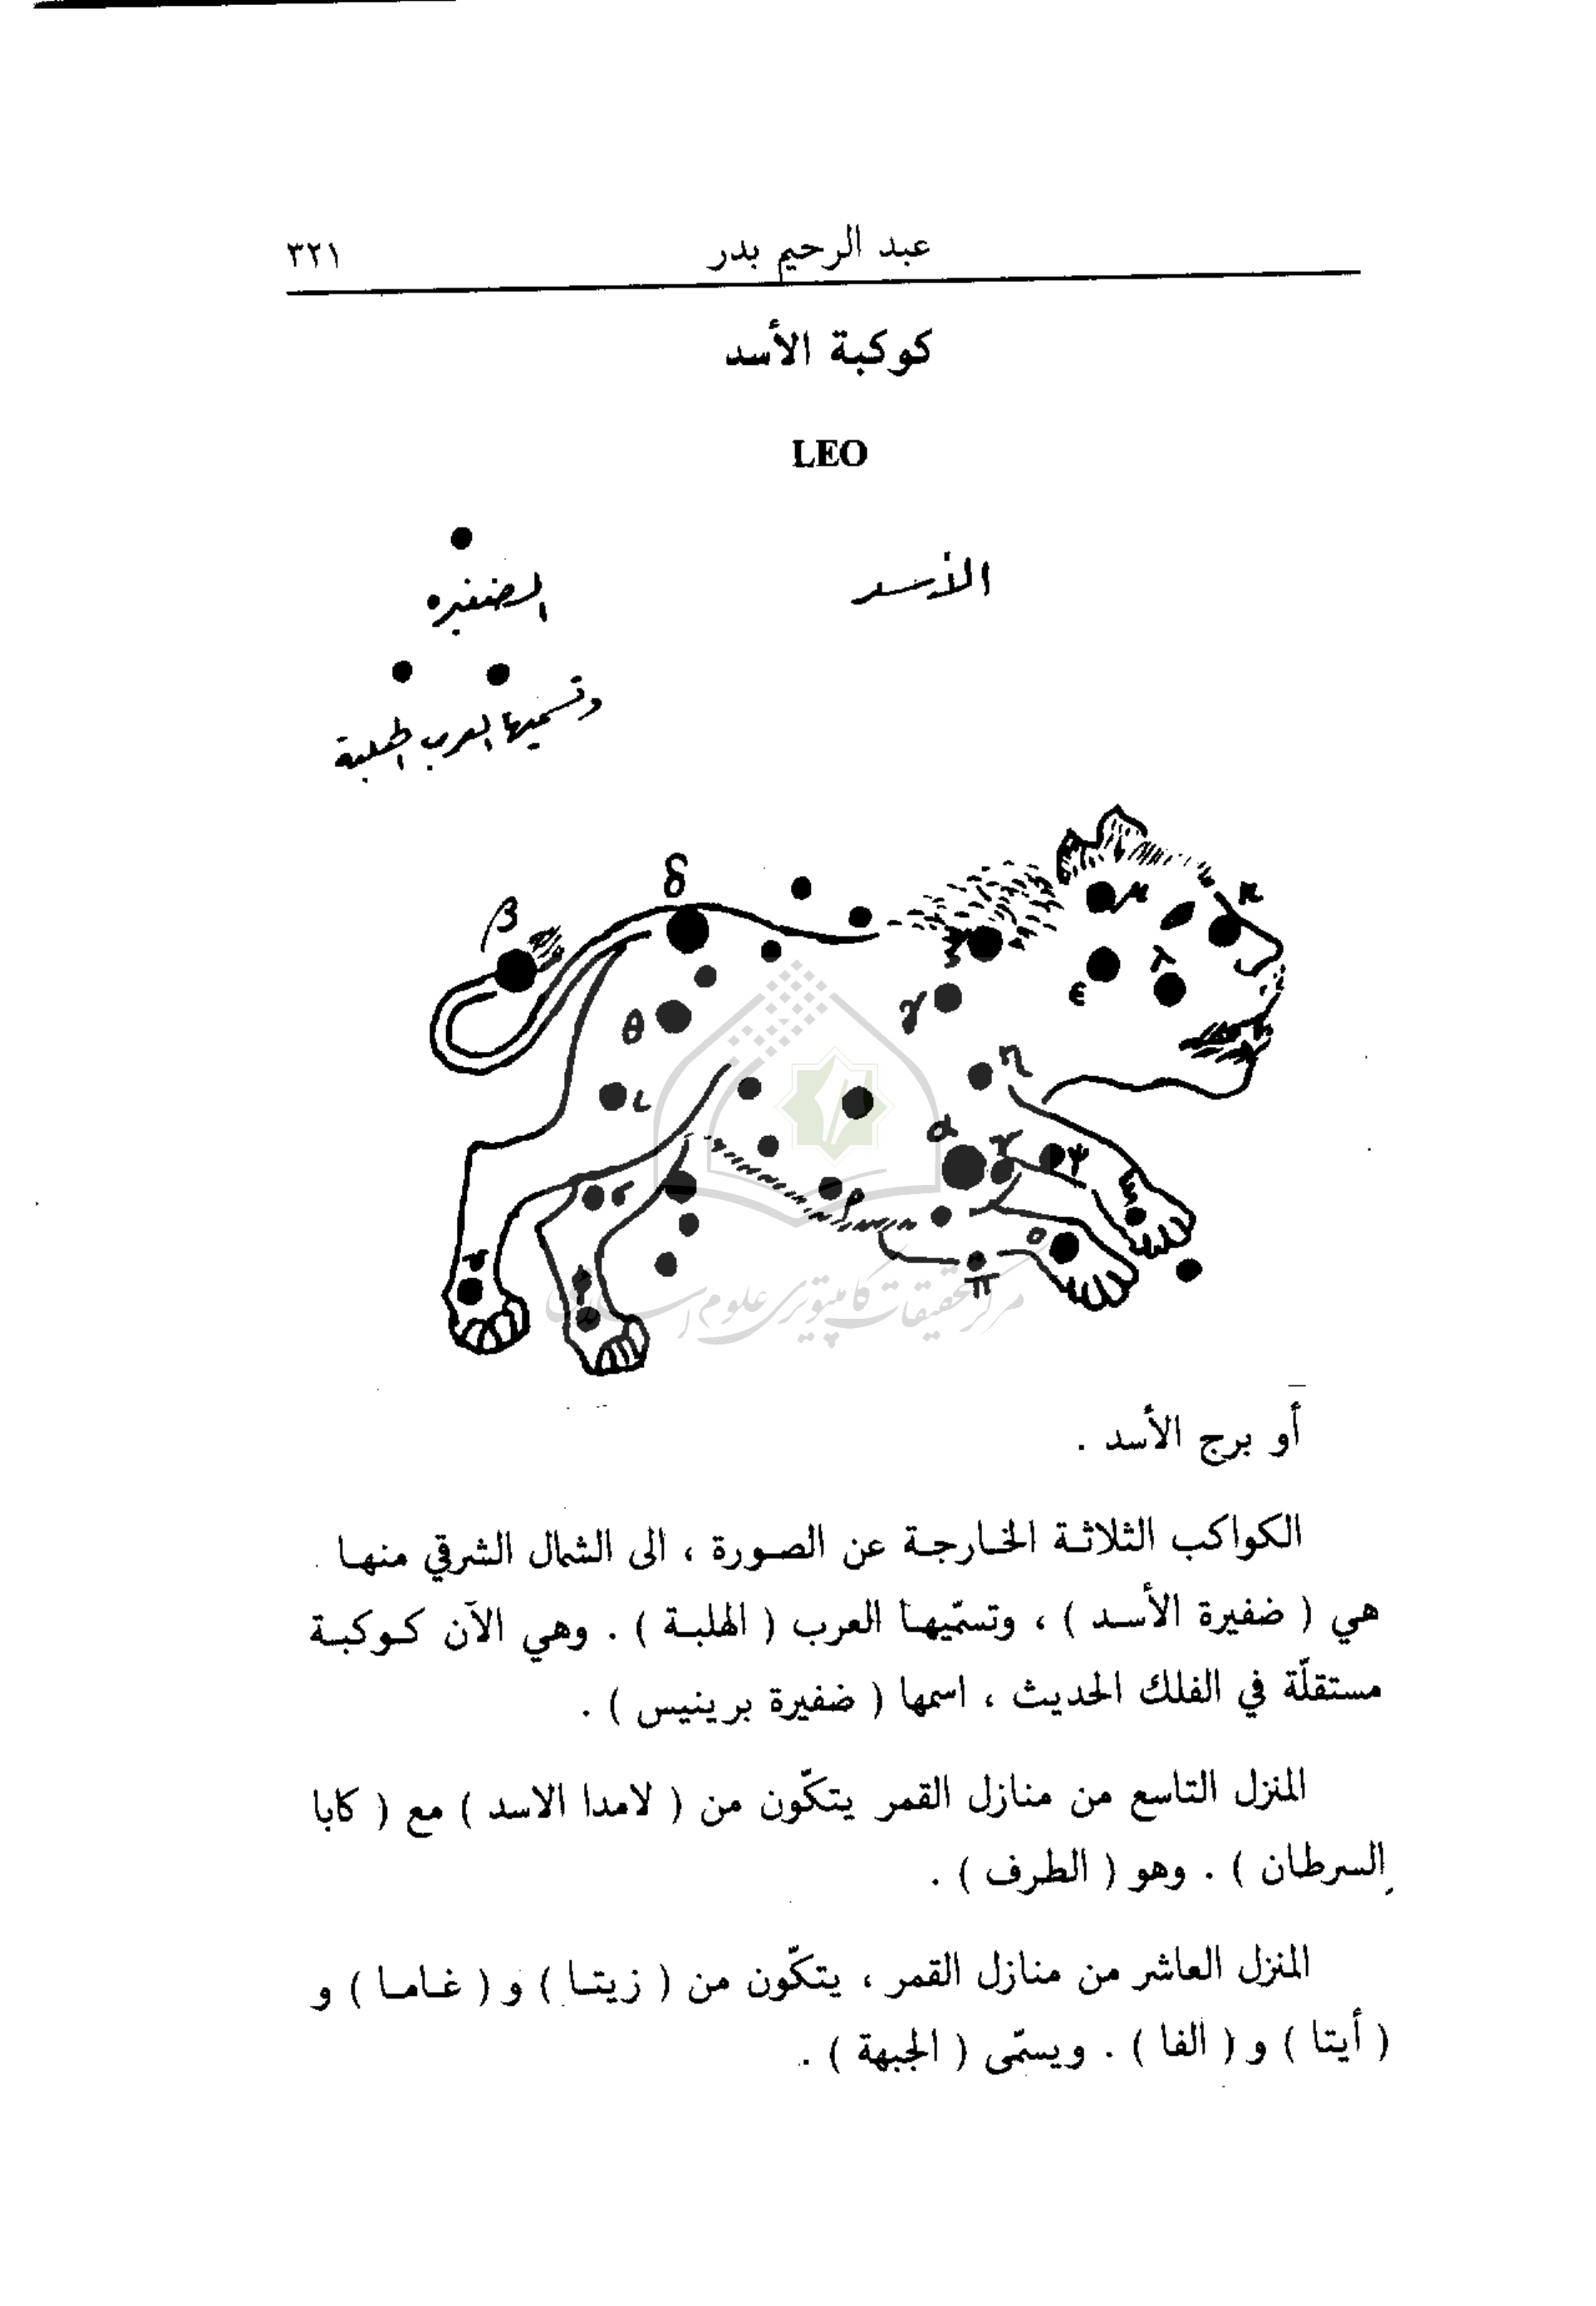 عبد الرحيم بدر ٣٢١
كوكبة الأسد
LEO
الأسد
الضفيره
وتسميها العرب الهلبة
δ
β
μ
κ
ζ
λ
ε
γ
θ
η
ι
α
ψ
ξ
ρ
σ
ο
τ
π
مركز تحقيقات كامپيوتری علوم اسلامی
أو برج الأسد .
الكواكب الثلاثة الخارجة عن الصورة ، الى الشمال الشرقي منها
هي ( ضفيرة الأسد ) ، وتسمّيها العرب ( الهلبة ) . وهي الآن كوكبة
مستقلّة في الفلك الحديث ، اسمها ( ضفيرة برينيس ) .
المنزل التاسع من منازل القمر يتكّون من ( لامدا الاسد ) مع ( كابا
السرطان ) . وهو ( الطرف ) .
المنزل العاشر من منازل القمر ، يتكّون من ( زيتا ) و ( غاما ) و
( أيتا ) و ( الفا ) . ويسمّى ( الجبهة ) .